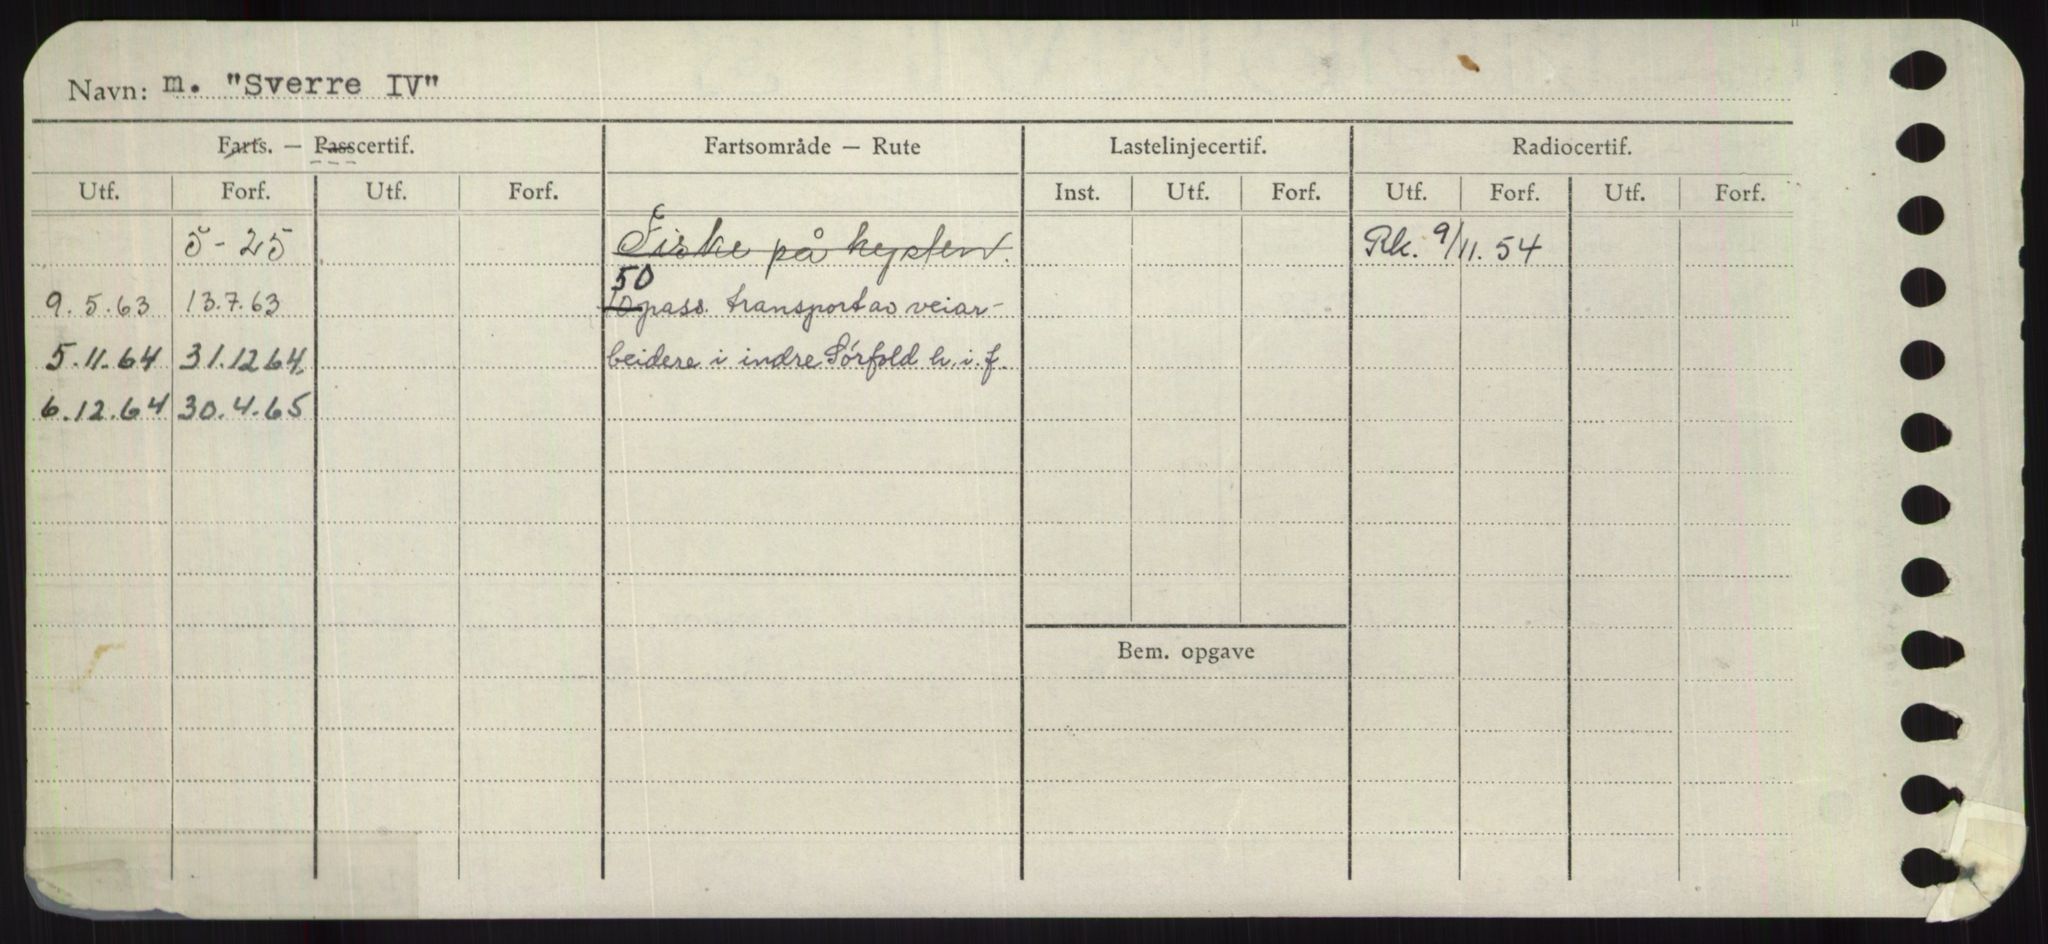 Navn: m. "Sverre IV"
Farts. — Passcertif. Fartsområde — Rute Lastelinjecertif. Radiocertif.
Utf. Forf. Utf. Forf. Inst. Utf. Forf. Utf. Forf. Utf. Forf.
5-25 Fiske på kysten. Rk. 9/11. 54
50
9.5.63 13.7.63 10 pass. transport av veiar-
5.11.64 31.12.64. beidere i indre Sørfold h.i.f.
6.12.64 30.4.65
Bem. opgave